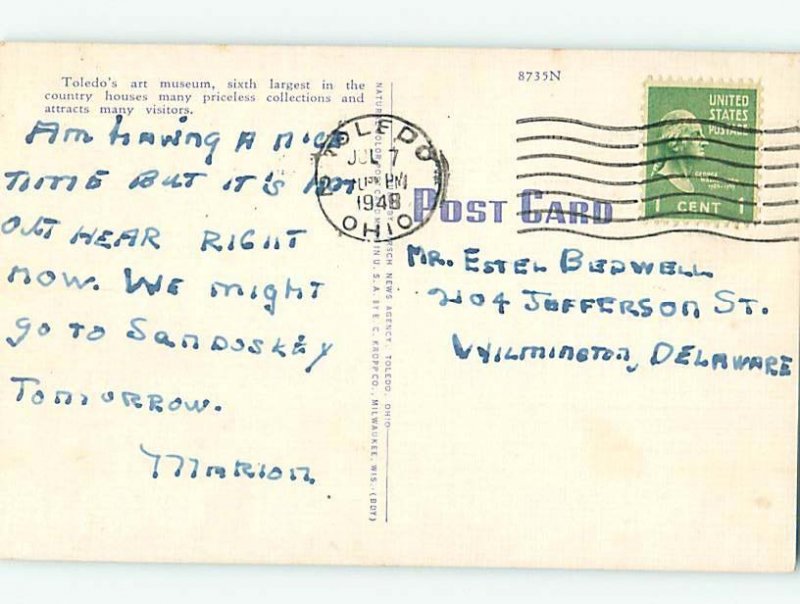 Toledo's art museum, sixth largest in the
country houses many priceless collections and
attracts many visitors.
Am having a nice
time but it's hot
out hear right
now. We might
go to Sanduskey
tomorrow.
Marion
TOLEDO
JUL 7
PM
1948
OHIO
8735N
UNITED
STATES
POSTAGE
1 CENT 1
POST CARD
Mr. Estel Bedwell
2104 Jefferson St.
Wilmington, Delaware
NEWS AGENCY, TOLEDO, OHIO
IN U.S.A. BY E. C. KROPP CO., MILWAUKEE, WIS.